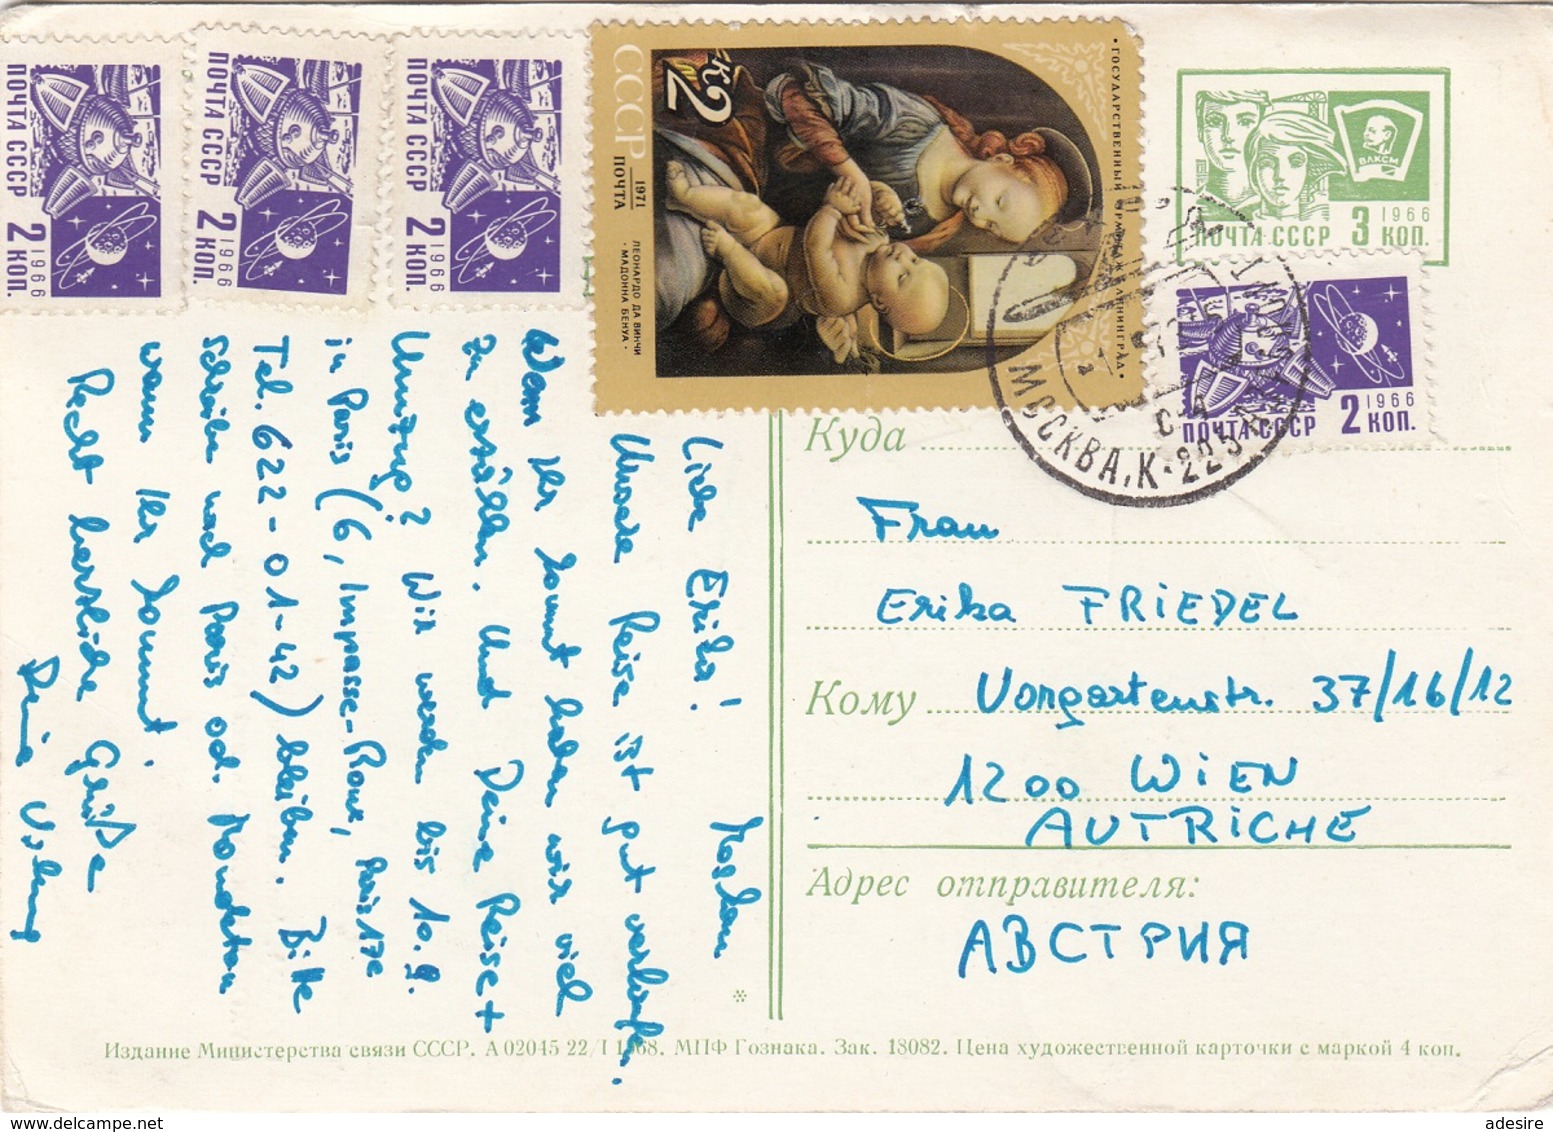 ПОЧТА СССР 2 1966 КОП.
ПОЧТА СССР 2 1966 КОП.
ПОЧТА СССР 2 1966 КОП.
СССР
1971
ПОЧТА
ЛЕОНАРДО ДА ВИНЧИ
· МАДОННА БЕНУА ·
к2
· ГОСУДАРСТВЕННЫЙ ЭРМИТАЖ ЛЕНИНГРАД ·
ВЛКСМ
1966
ПОЧТА СССР 3 КОП.
1966
ПОЧТА СССР 2 КОП.
МОСКВА, К-225
Moskau
Liebe Erika!
Unsere Reise ist gut verlaufen.
Wenn Ihr kommt haben wir viel
zu erzählen. Und Deine Reise +
Umzug? Wir werden bis 10.9.
in Paris (6, Impasse-Roux, Paris 17e
Tel. 622-01-42) bleiben. Bitte
schreibe nach Paris od. Menton
wann Ihr kommt.
Recht herzliche Grüße
Deine
Куда
Frau
Erika FRIEDEL
Кому Vorgartenstr. 37/16/12
1200 WIEN
AUTRICHE
Адрес отправителя:
АВСТРИЯ
*
Издание Министерства связи СССР. А 02045 22/I 1968. МПФ Гознака. Зак. 18082. Цена художественной карточки с маркой 4 коп.
www.delcampe.net
adesire